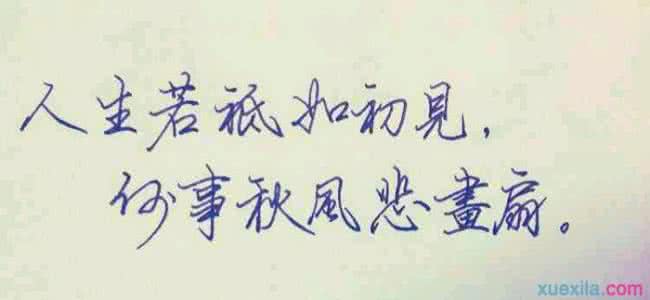 人生若祗如初見，
何事秋風悲畫扇。
xuexila.com